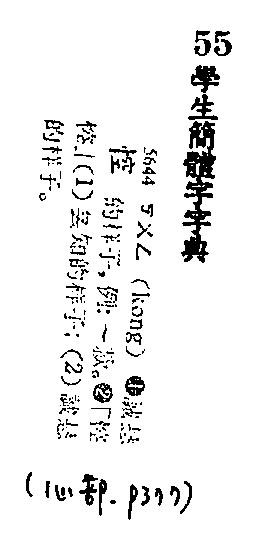 55
學生簡體字字典
5644 ㄎㄨㄥ (kong) ❶誠懇
悾 的样子,例:~款。❷「悾
悾」(1)無知的样子;(2)誠懇
的样子。
(心部. P377)